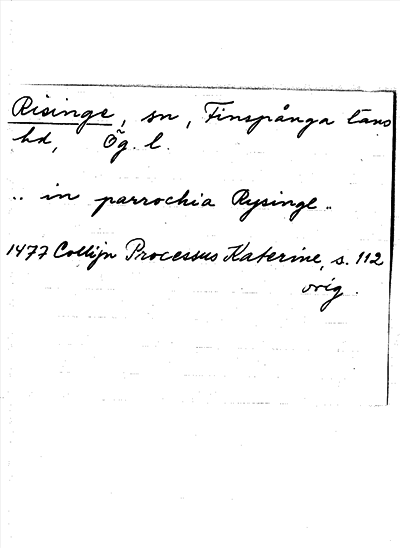 Risinge, sn, Finspånga läns
hd, Ög. l.
.. in parrochia Rysinge ..
1477 Collijn Processus Katerine, s. 112
orig.